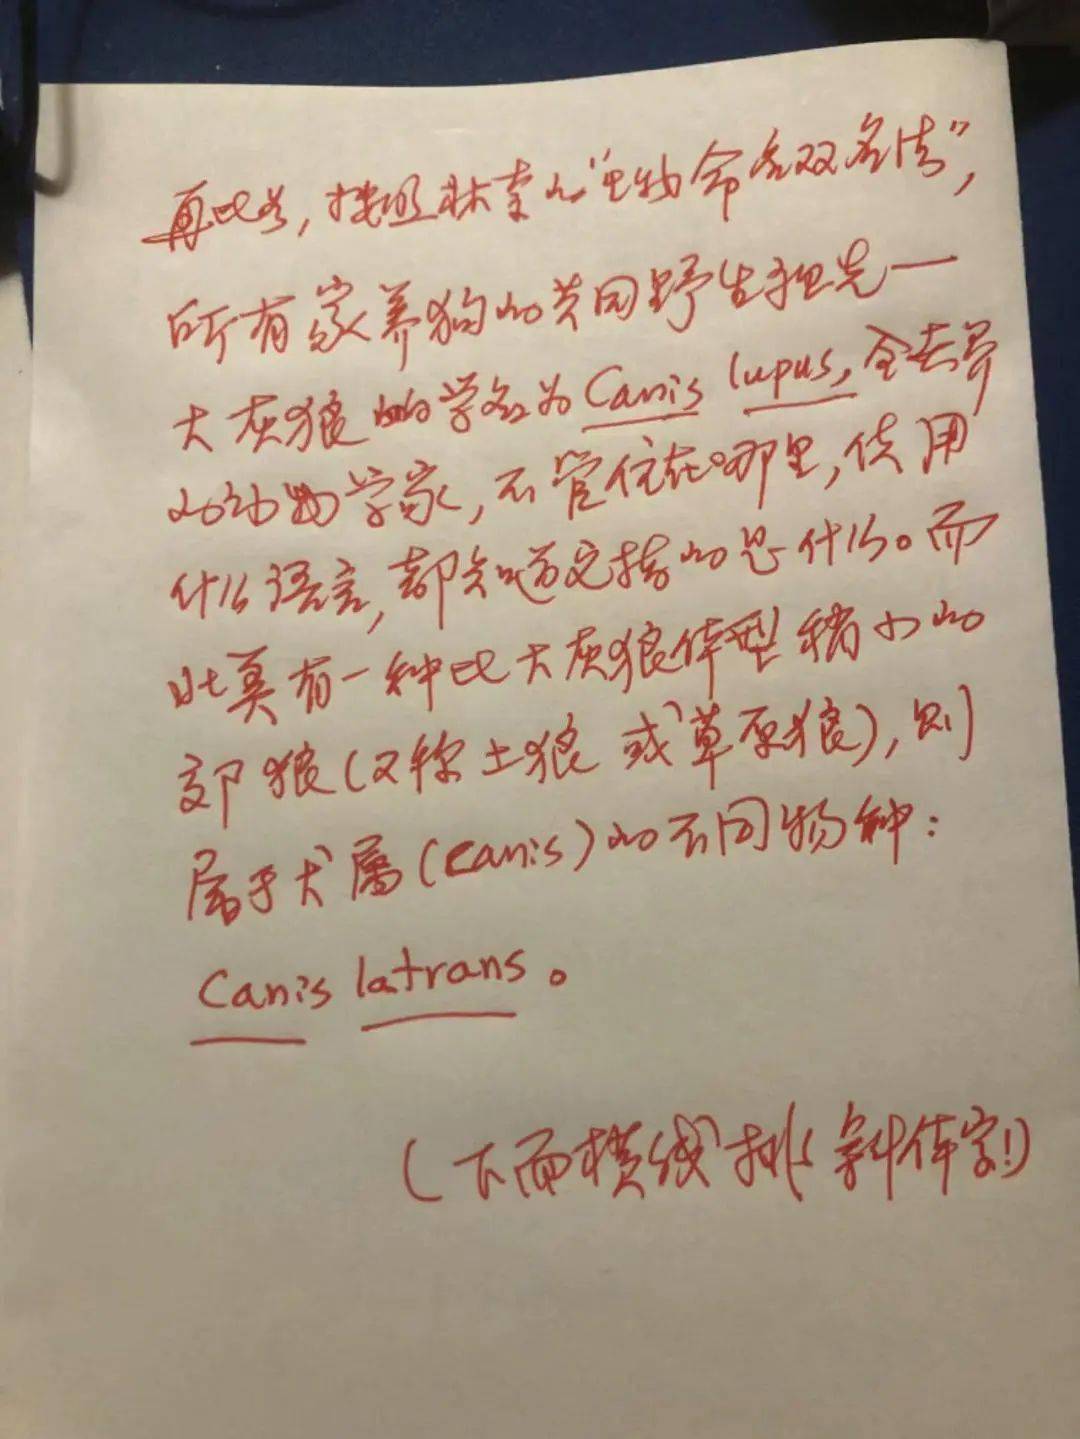 再比如，按照林奈的“生物命名双名法”，
所有家养狗的共同野生祖先一
大灰狼的学名为Canis lupus，全世界
的动物学家，不管住在哪里，使用
什么语言，都知道它指的是什么。而
北美有一种比大灰狼体型稍小的
郊狼（又称土狼或草原狼），则
属于犬属（Canis）的不同物种：
Canis latrans。
（下面横线排斜体字！）